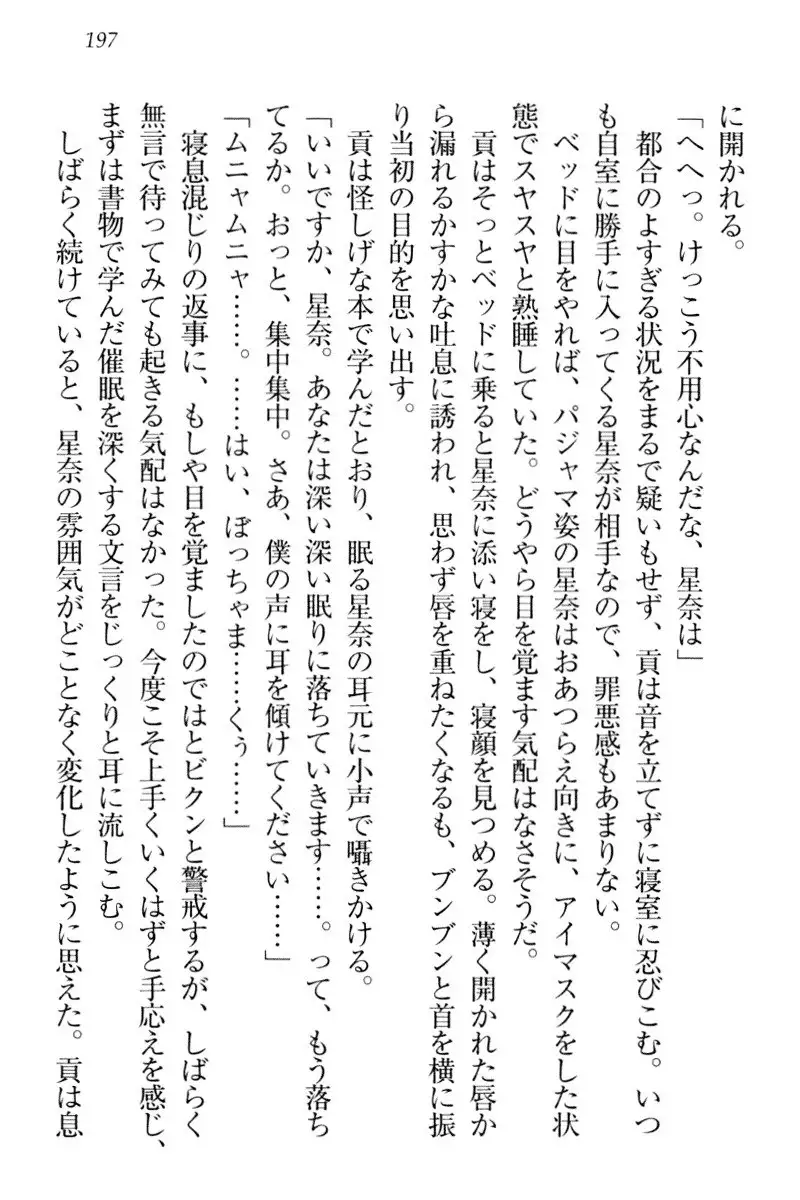 197
に開かれる。
「へへっ。けっこう不用心なんだな、星奈は」
都合のよすぎる状況をまるで疑いもせず、貢は音を立てずに寝室に忍びこむ。いつ
も自室に勝手に入ってくる星奈が相手なので、罪悪感もあまりない。
ベッドに目をやれば、パジャマ姿の星奈はおあつらえ向きに、アイマスクをした状
態でスヤスヤと熟睡していた。どうやら目を覚ます気配はなさそうだ。
貢はそっとベッドに乗ると星奈に添い寝をし、寝顔を見つめる。薄く開かれた唇か
ら漏れるかすかな吐息に誘われ、思わず唇を重ねたくなるも、ブンブンと首を横に振
り当初の目的を思い出す。
貢は怪しげな本で学んだとおり、眠る星奈の耳元に小声で囁きかける。
「いいですか、星奈。あなたは深い深い眠りに落ちていきます……。って、もう落ち
てるか。おっと、集中集中。さあ、僕の声に耳を傾けてください……」
「ムニャムニャ……。……はい、ぼっちゃま……くぅ……」
寝息混じりの返事に、もしや目を覚ましたのではとビクンと警戒するが、しばらく
無言で待ってみても起きる気配はなかった。今度こそ上手くいくはずと手応えを感じ、
まずは書物で学んだ催眠を深くする文言をじっくりと耳に流しこむ。
しばらく続けていると、星奈の雰囲気がどことなく変化したように思えた。貢は息